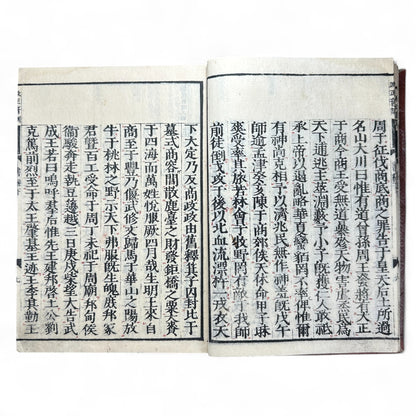 周于征伐商底商之罪告于皇天后土所過
名山大川曰惟有道曾孫周王發將有大正
于商今商王受無道暴殄天物害虐烝民為
天下逋逃主萃淵藪予小子既獲仁人敢祗
承上帝以遏亂略華夏蠻貊罔不率俾惟爾
有神尚克相予以濟兆民無作神羞既戊午
師逾孟津癸亥陳于商郊俟天休命甲子昧
爽受率其旅若林會于牧野罔有敵于我師
前徒倒戈攻于後以北血流漂杵一戎衣天
下大定乃反商政政由舊釋箕子囚封比干
墓式商容閭散鹿臺之財發鉅橋之粟大賚
于四海而萬姓悅服厥四月哉生明王來自
商至于豐乃偃武修文歸馬于華山之陽放
牛于桃林之野示天下弗服既生魄庶邦冢
君暨百工受命于周丁未祀于周廟邦甸侯
衛駿奔走執豆籩越三日庚戌柴望大告武
成王若曰嗚呼羣后惟先王建邦啓土公劉
克篤前烈至于大王肇基王迹王季其勤王